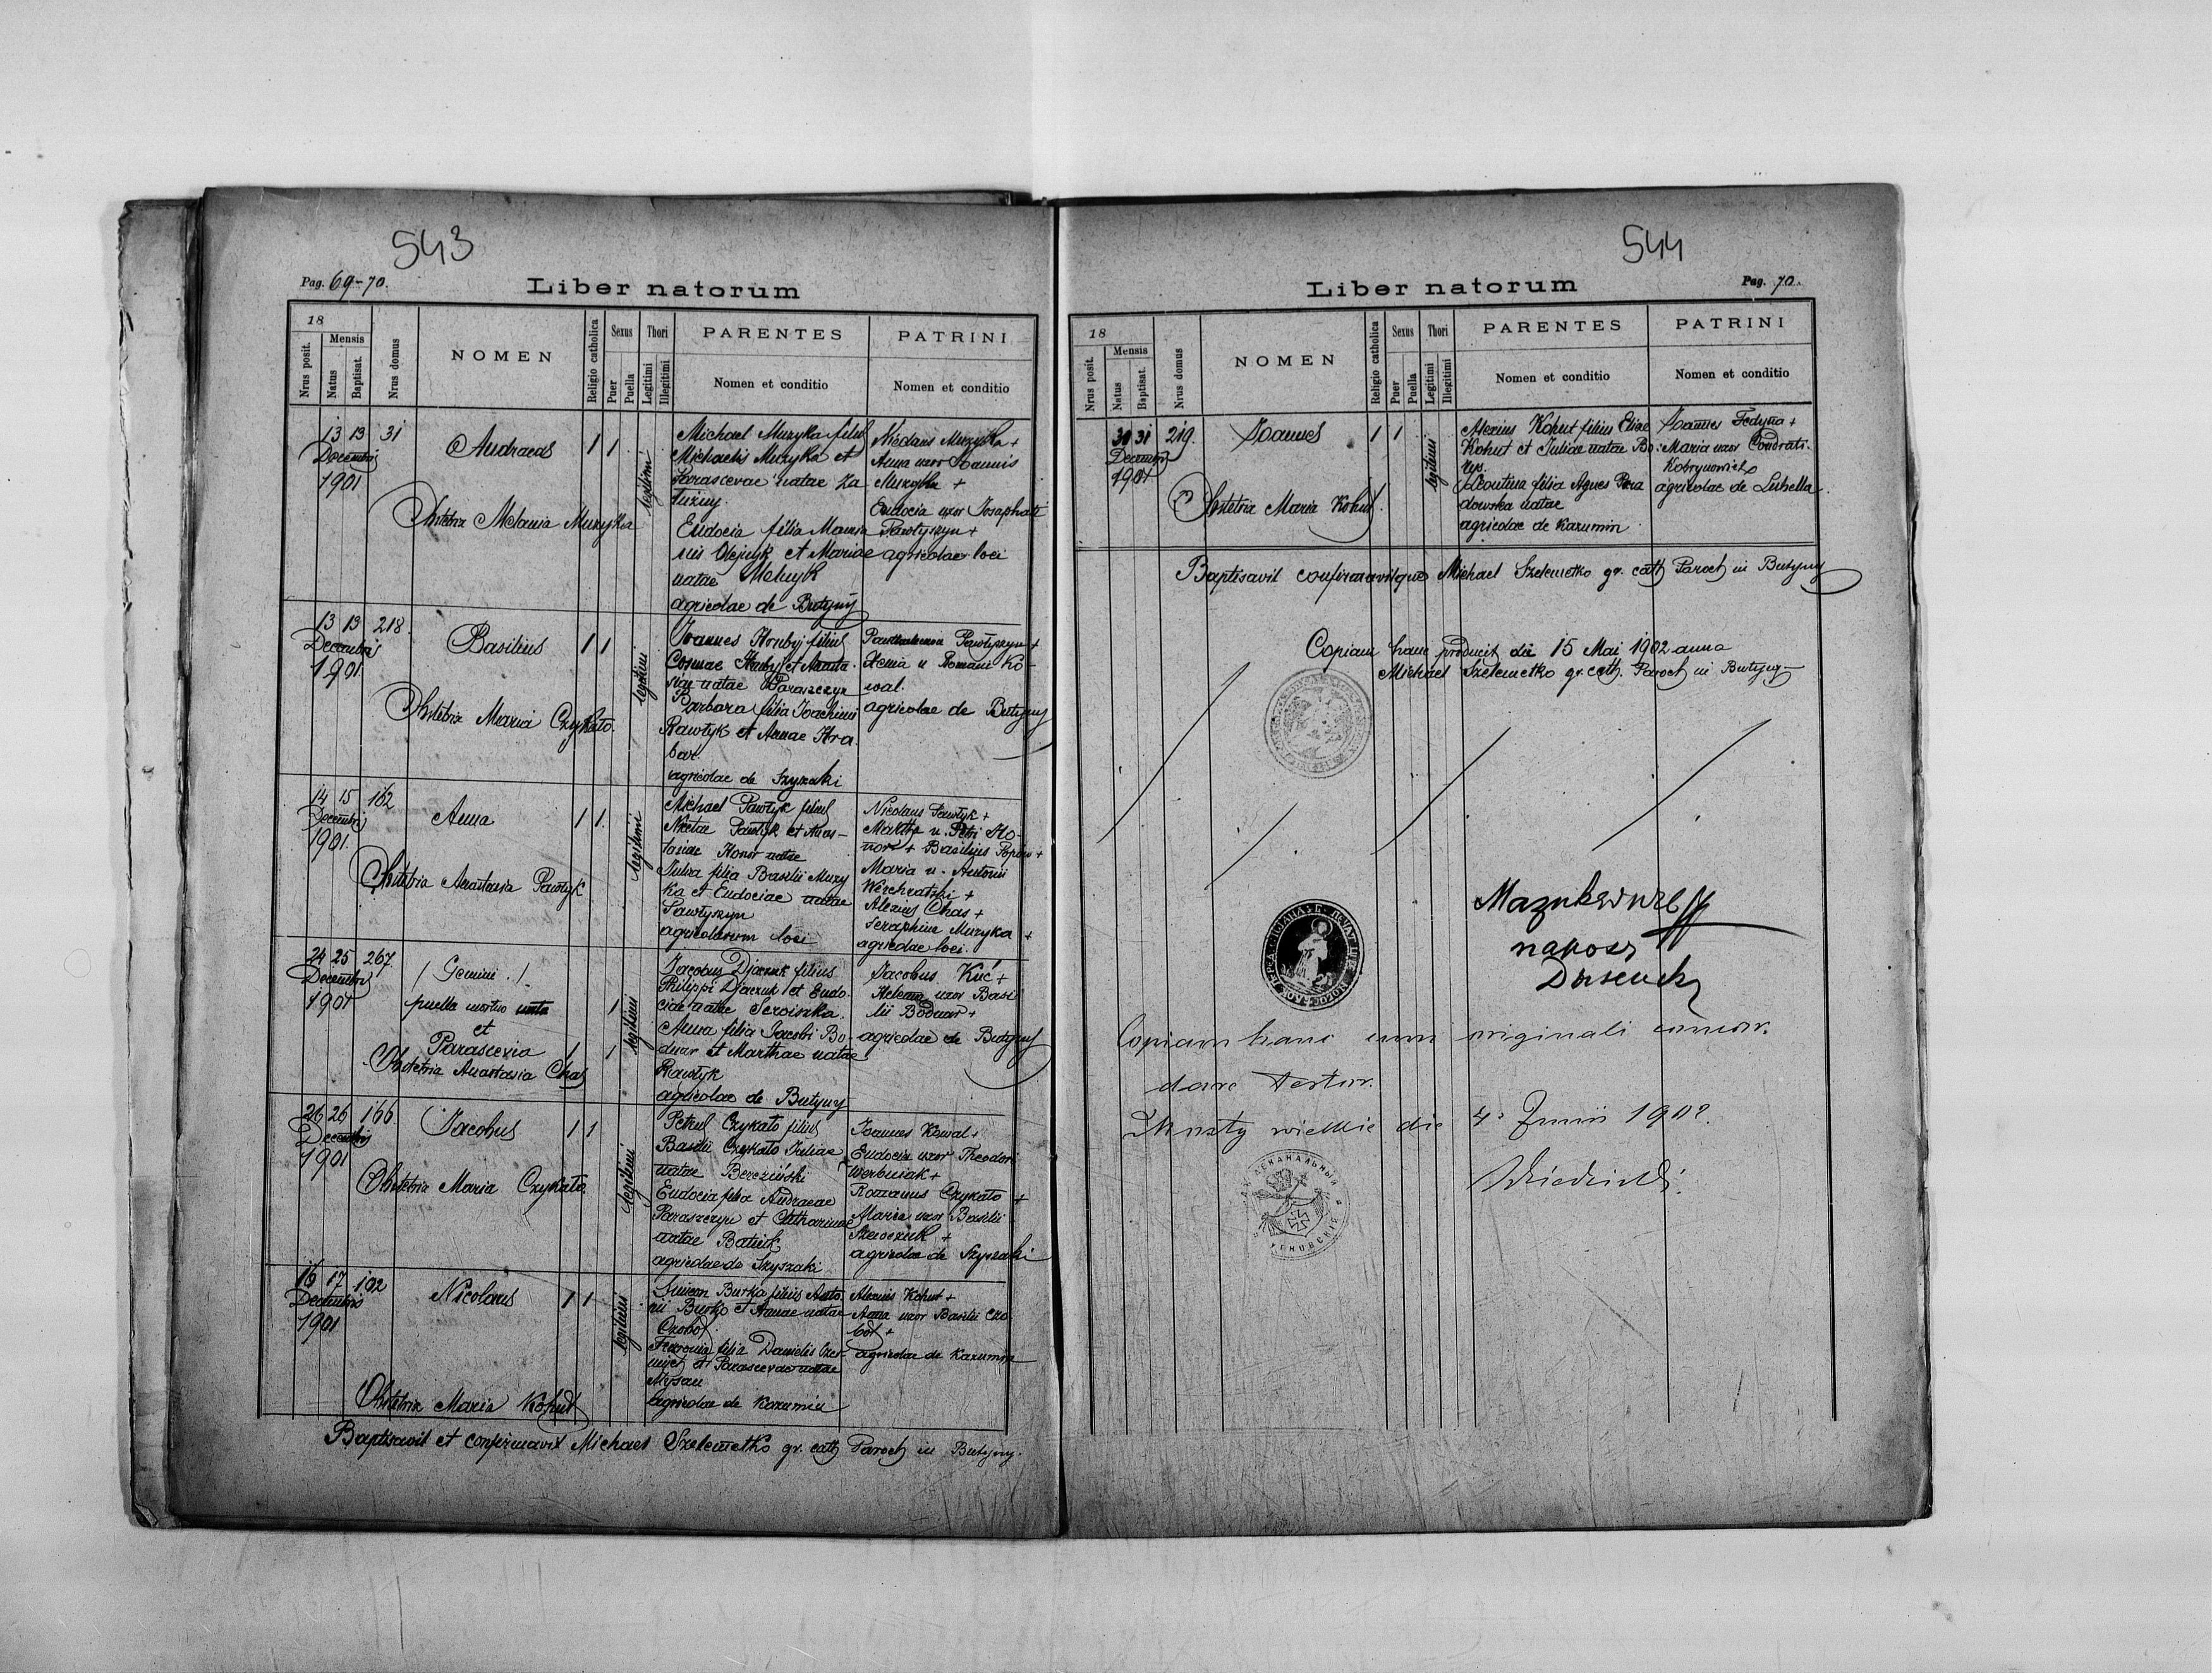 543
Pag. 69-70.
Liber natorum
18
Nrus posit.
Mensis
Natus
Baptisat.
Nrus domus
NOMEN
Religio catholica
Sexus
Puer
Puella
Thori
Legitimi
Illegitimi
PARENTES
Nomen et conditio
PATRINI
Nomen et conditio
13 13 31
Decembris
1901
Andreas
1 1
legitimi
Obstetrix Melania Muzyka
Michael Muzyka filius
Michaelis Muzyka et
Parascevae natae Ka
tużny
Eudocia filia Joannis
Olejnyk et Mariae
natae Melnyk
agricolae de Butyny
Nicolaus Muzyka +
Anna uxor Joannis
Muzyka +
Eudocia uxor Josaphati
Pawłyszyn +
agricolae loci
13 13 218
Decembris
1901
Basilius
1 1
legitimi
Obstetrix Maria Czykało.
Joannes Hruby filius
Cosmae Hruby et Anasta-
siae natae Paraszczyn
Barbara filia Joachimi
Pawłyk et Annae Hra
bar.
agricolae de Szyszaki
Pawłyszyn +
Xenia u Romani Ko-
wal.
agricolae de Butyny
14 15 162
Decembris
1901.
Anna
1 1.
legitimi
Obstetrix Anastasia Pawłyk
Michael Pawłyk filius
Nicetae Pawłyk et Anas-
tasiae Honor natae
Julia filia Basilii Muzy
ka et Eudociae natae
Pawłyszyn
agricolarum loci
Nicolaus Pawłyk +
Martha u. Petri Ho-
nor + Basilius Popow +
Maria u. Antonii
Werchratski +
Alexius Chas +
Seraphina Muzyka +
agricolae loci.
24 25 267.
Decembris
1901
/ Gemini ./
puella mortuo nata
et
Parascevia
1
1 1
legitimi
Obstetrix Anastasia Chas
Jacobus Djaczuk filius
Philippi Djaczuk et Eudo-
ciae natae
Anna filia Jacobi Bo-
dnar et Marthae natae
Pawłyk
agricolae de Butyny
Jacobus Kuć +
Helena uxor Basi
lii Bodnar +
agricolae de Butyny
26 26 166.
Decembris
1901
Jacobus
1 1
legitimi
Obstetrix Maria Czykało.
Petrus Czykało filius
Basilii Czykało Juliae
natae Bereziński
Eudocia filia Andreae
Paraszczyn et Catharinae
natae
agricolae de Szyszaki
Joannes Kowal +
Eudocia uxor Theodori
Werbniak +
Romanus Czykało +
Maria uxor Basilii
Szewczuk +
agricolae de Szyszaki
16 17 192
Decembris
1901
Nicolaus
1 1
legitimi
Obstetrix Maria Kohut
Simeon Burko filius Anto
nii Burko et Annae natae
Czobot.
Fevronia filia Danielis
et Parascevae natae
Mysan
agricolae de Kazumin
Alexius Kohut +
Anna uxor Basilii Czo
bot +
agricolae de Kazumin
Baptisavit et confirmavit Michael Szelemetko gr. cath Paroch in Butyny.
544
Liber natorum
Pag. 70.
18
Nrus posit.
Mensis
Natus
Baptisat.
Nrus domus
NOMEN
Religio catholica
Sexus
Puer
Puella
Thori
Legitimi
Illegitimi
PARENTES
Nomen et conditio
PATRINI
Nomen et conditio
30 31 219.
Decembris
1901
Joannes
1 1
legitimi
Obstetrix Maria Kohut.
Alexius Kohut filius Eliae
Kohut et Juliae natae Bo-
rys.
Leontina filia Agnes
dowska natae
agricolae de Kazumin
Joannes Fedyna +
Maria uxor Condrati
Kobrynowicz
agricolae de Lubella
Baptisavit confirmavitque Michael Szelemetko gr. cath Paroch in Butyny
Copiam hanc producit die 15 Mai 1902 anno
Michael Szelemetko gr. cath. Paroch in Butyny
Copiam hanc cum originali concor.
dare testor.
Mosty wielkie die 4. Junii 1902.